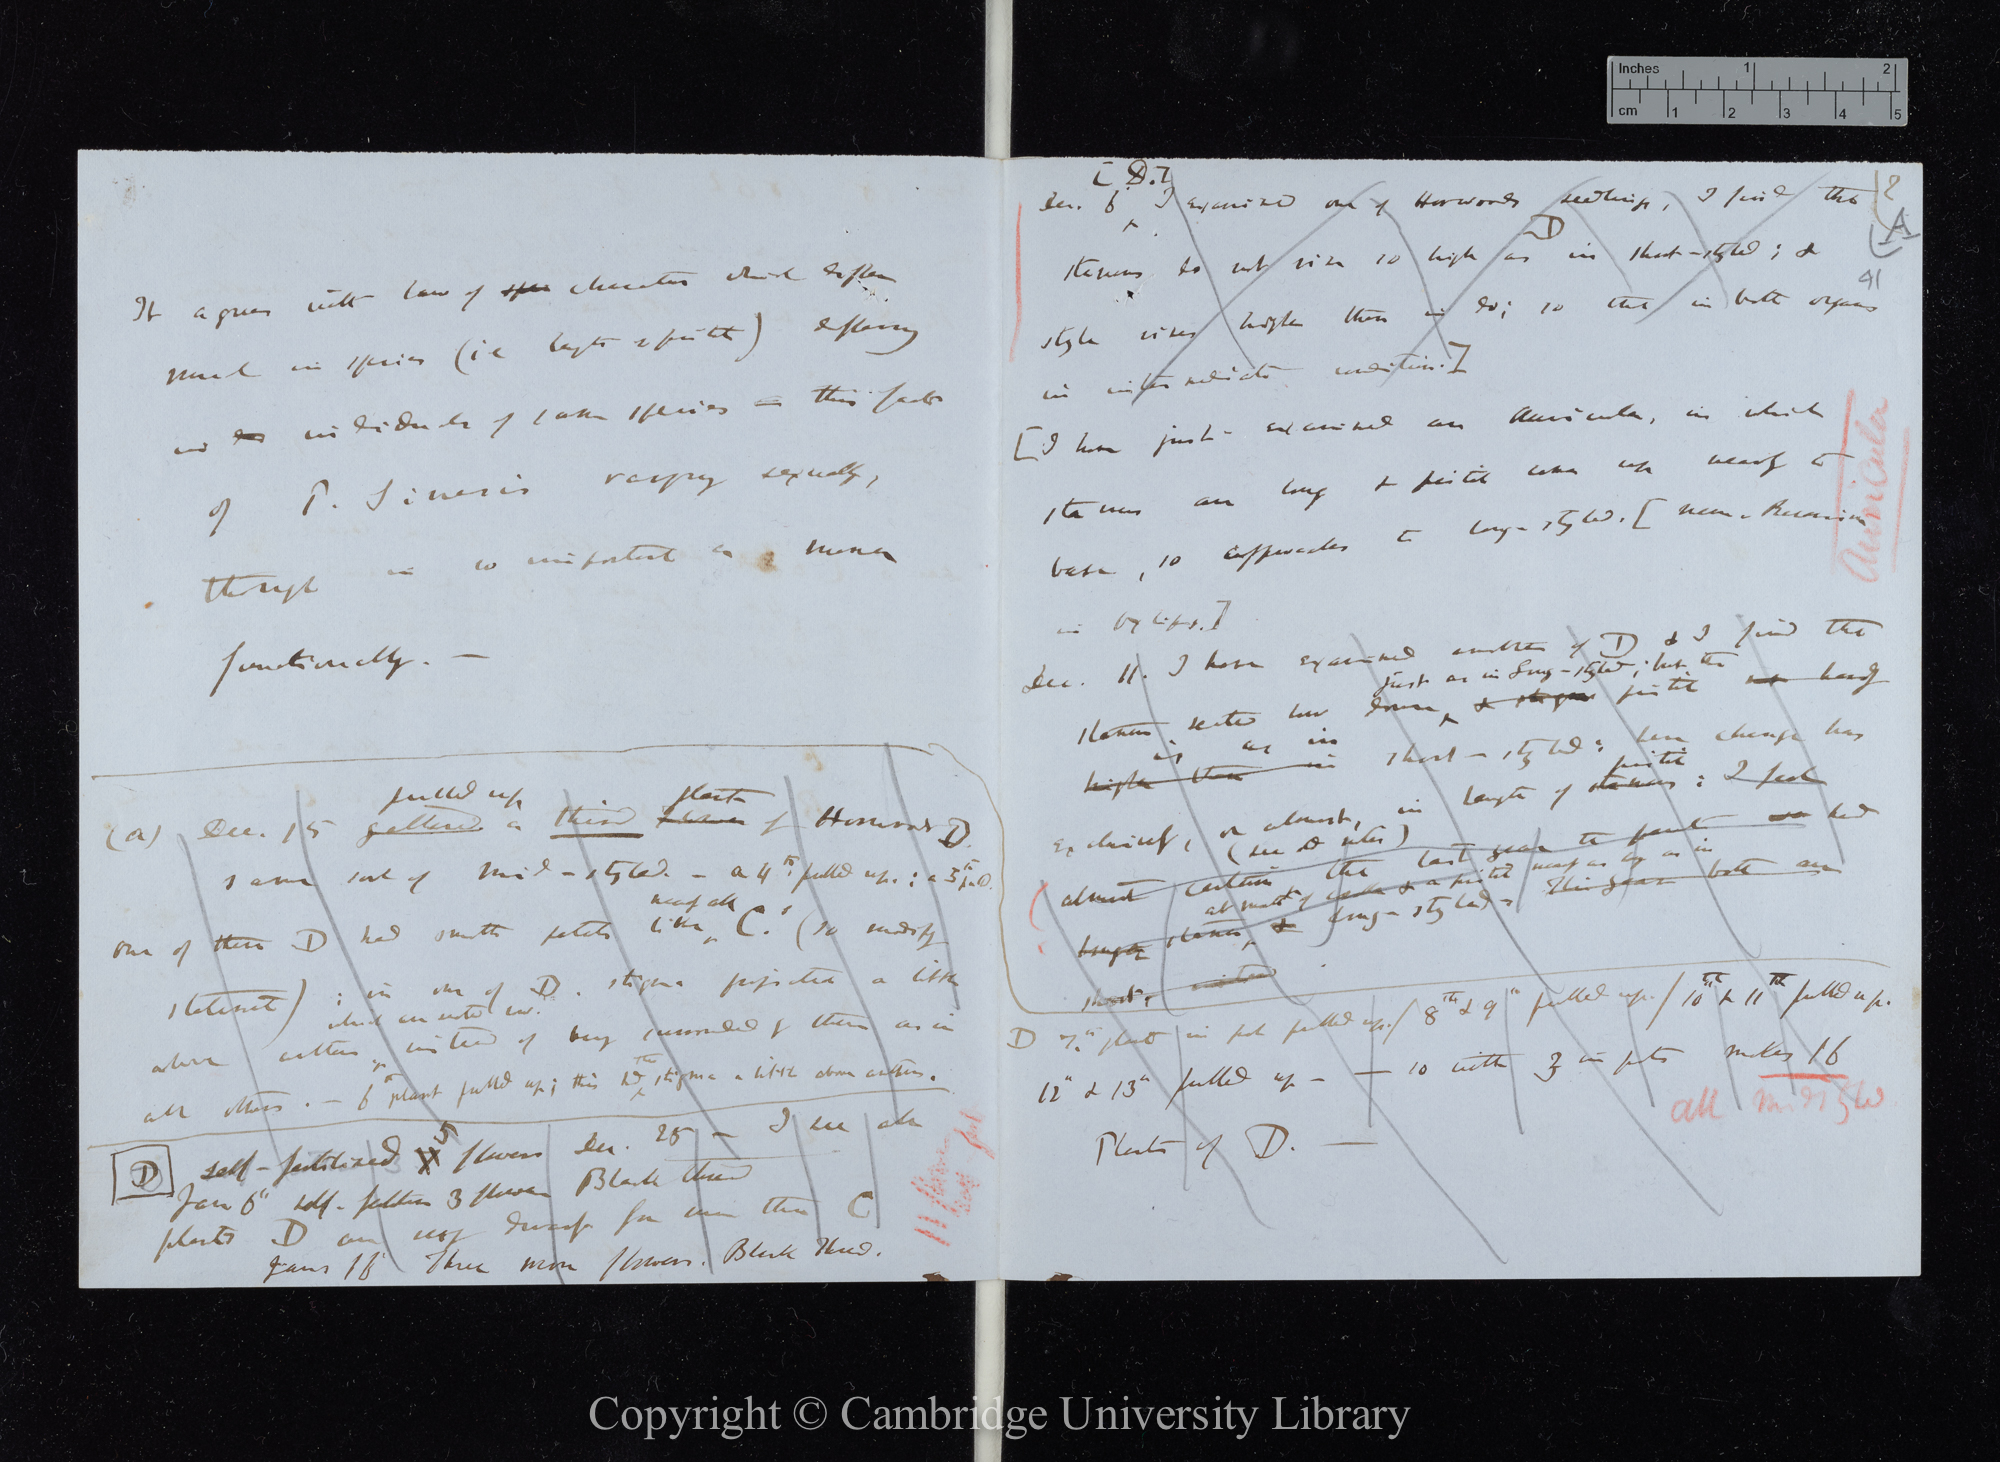 It agrees with law of spe character which differ
much in species (ie length of pistil) differing
in individuals of same species = this fact
of P. Sinensis varying sexually,
though is so important in manner
functionally. —
(a) Dec. 15 gathered pulled up a third flower plant of Horwoods D.
same sort of mid-styled. — a 4th pulled up.: a 5th pulled.
one of these D had smooth petals like nearly all C.' (so modify
statement) ; in one of D. stigma projected a little
above anthers, which are seated low. instead of being surrounded by them as in
all others. — 6th plant pulled up; this stigma a little above anthers.
D self-fertilised 5 flowers Dec. 25 — I see all
Jan 6th self-fertilised 3 flowers Black thread
plants D are very dwarf far more than C
Jany 16 Three more flowers. Black Thread.
11 flowers
[D.]
Dec. 6 I examined one of Horwoods seedlings, I find the
D
stamens do not rise so high as in short-styled; &
style rises higher than in do; so that in both organs
in intermediate condition.]
[I have just examined an Auricula, in which
stamens are long & pistil runs up nearly to
base, so approaches to long-styled. [mem.
in Oxlips.]
Dec. 11. I have examined another of D & I find the
stamens seated low down, just as in long-styled; but the & stigma pistil hardly
higher than in is as in short-styled: here change has
exclusively, or almost, in length of stamens pistil: I feel
(see D notes)
almost certain that last year the plant had
longer stamens, & long-styled. This year both are
short.
D 7th plant in pot pulled up./ 8th & 9th pulled up./ 10th & 11th pulled up.
12th & 13th pulled up — — so with 3 in pots makes 16
Plants of D. —
all mid styled
Auricula
2
A
41
Inches 1 2
cm 1 2 3 4 5
Copyright © Cambridge University Library